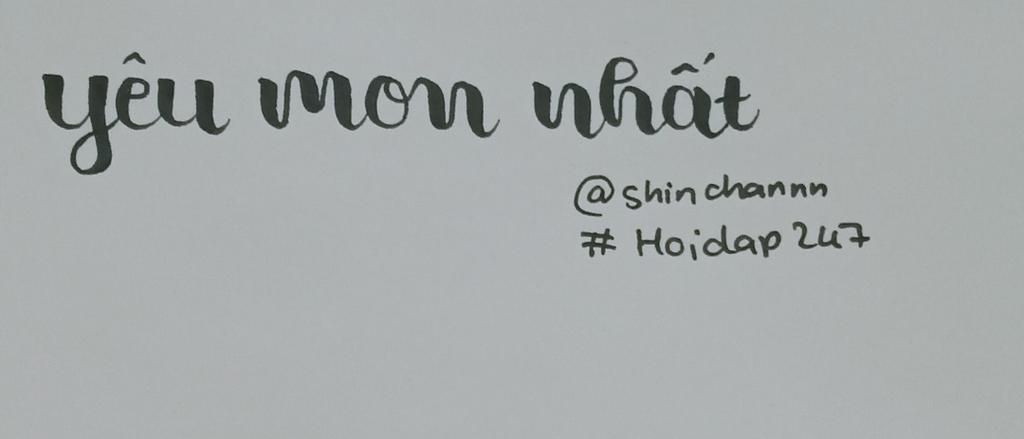 yêu mon nhất
@shinchannn
# Hoidap 247